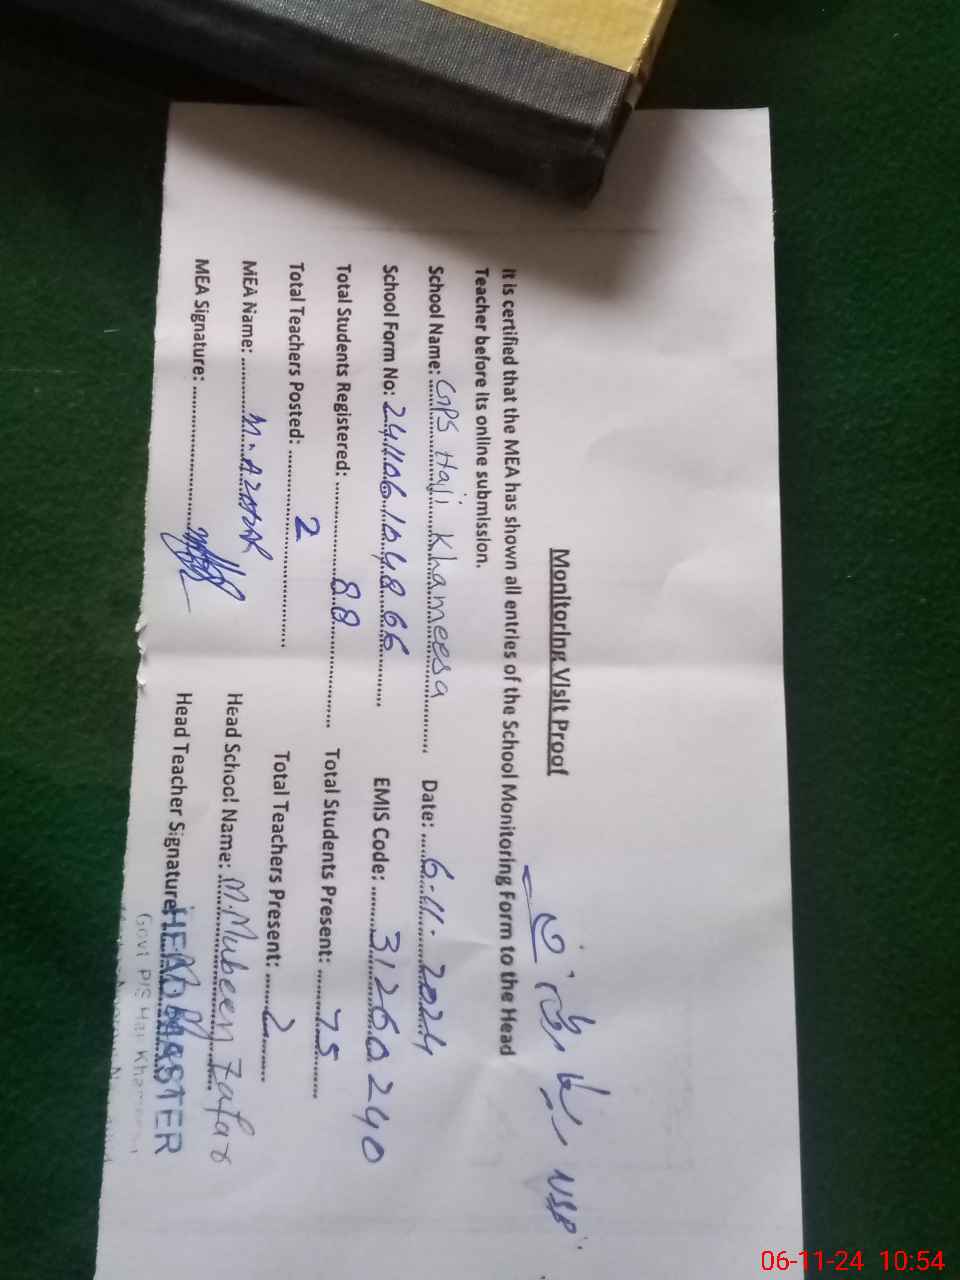 Monitoring Visit Proof
NSB
It is certified that the MEA has shown all entries of the School Monitoring Form to the Head
Teacher before its online submission.
School Name: GPS Haji Khameesa Date: 6.11.2024
School Form No: 241106104866 EMIS Code: 31260240
Total Students Registered: 88 Total Students Present: 75
Total Teachers Posted: 2 Total Teachers Present: 2
MEA Name: M. Azhar Head School Name: M. Mubeen Zafar
MEA Signature: Head Teacher Signature:
HEAD MASTER
Govt P/S Haji Khameesa
06-11-24 10:54